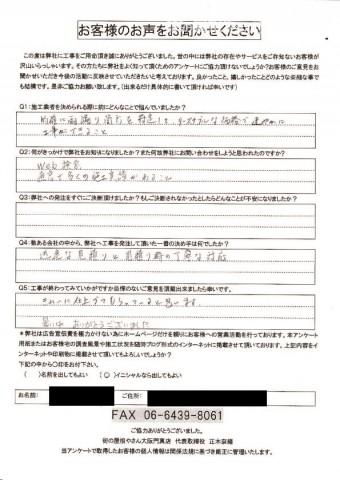 お客様のお声をお聞かせください
この度は弊社に工事をご用命頂き誠にありがとうございました。世の中には弊社の存在やサービスをご存知ないお客様が
沢山いらっしゃいます。その方たちに弊社をよく知って頂くためのアンケートにご協力頂けないでしょうか？お客様のご意見をお
聞かせいただき今後の活動に反映させていただきたいと考えております。良かったこと、嬉しかったことどのような些細な事で
も結構です。是非ご協力お願い致します。（出来るだけ具体的に書いて頂ければ幸いです）
Q1：施工業者を決められる際に前にどんなことで悩んでいましたか？
的確に雨漏り箇所を特定して、リーズナブルな価格で速やかに
工事ができること
Q2：何がきっかけで弊社をお知りになりましたか？また何故弊社にお問い合わせをしようと思われたのですか？
Web検索
多くの施工実績があること
Q3：弊社への発注をすぐにご決断頂けましたか？もしご決断されなかったとしたらどんなことが不安になりましたか？
Q4：数ある会社の中から、弊社へ工事を発注して頂いた一番の決め手は何でしたか？
迅速な見積りと見積り時の丁寧な対応
Q5：工事が終わってみていかがですか？忌憚のないご意見を頂戴出来ましたら幸いです。
きれいに仕上げてもらっていると思います。
暑い中ありがとうございました
＊弊社は広告宣伝費を極力かけない為にホームページだけを頼りにお客様への営業活動を行っております。本アンケート
用紙またはお客様宅の調査風景や施工状況を随時ブログ形式のインターネットに掲載させて頂いております。上記内容をイ
ンターネットや印刷物に掲載させて頂いてもよろしいでしょうか？
下記の中から○印をお付け下さい。
（　）名前を出してもよい　（○）イニシャルなら出してもよい
お名前：　ご住所：
FAX 06-6439-8061
ご協力ありがとうございました。
街の屋根やさん大阪門真店　代表取締役　正木宗繙
当アンケートで取得したお客様の個人情報は関係法規に基づき厳正に管理いたします。